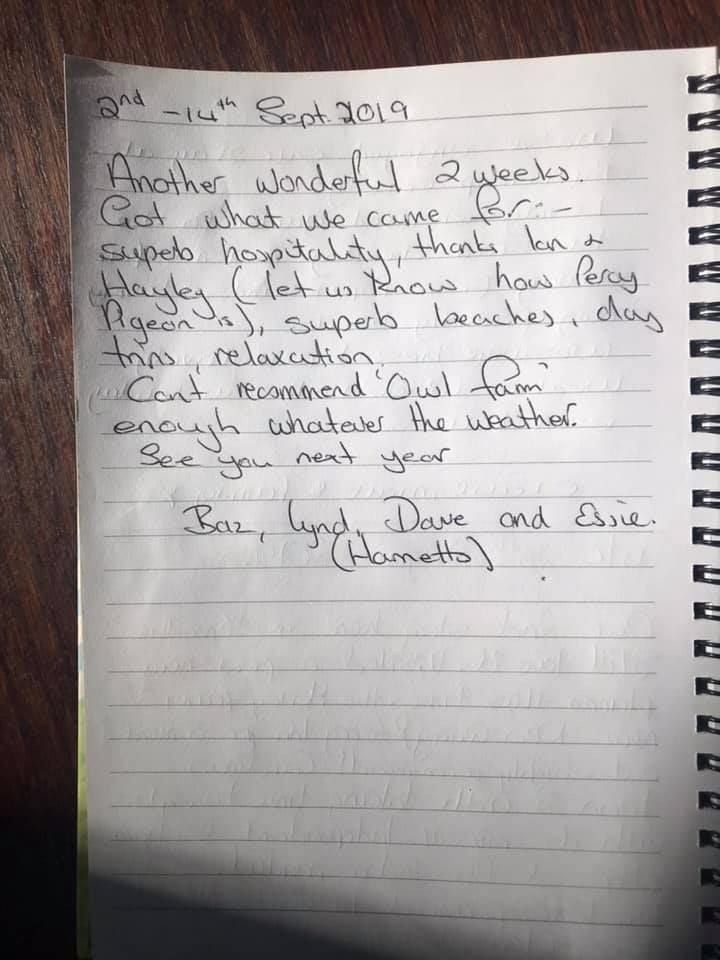 2nd - 14th Sept. 2019
Another wonderful 2 weeks.
Got what we came for:-
superb hospitality, thanks Ian &
Hayley (let us know how Percy
Pigeon is), superb beaches, day
trips, relaxation.
Cant recommend 'Owl farm'
enough whatever the weather.
See you next year
Baz, Lynd, Dave and Essie.